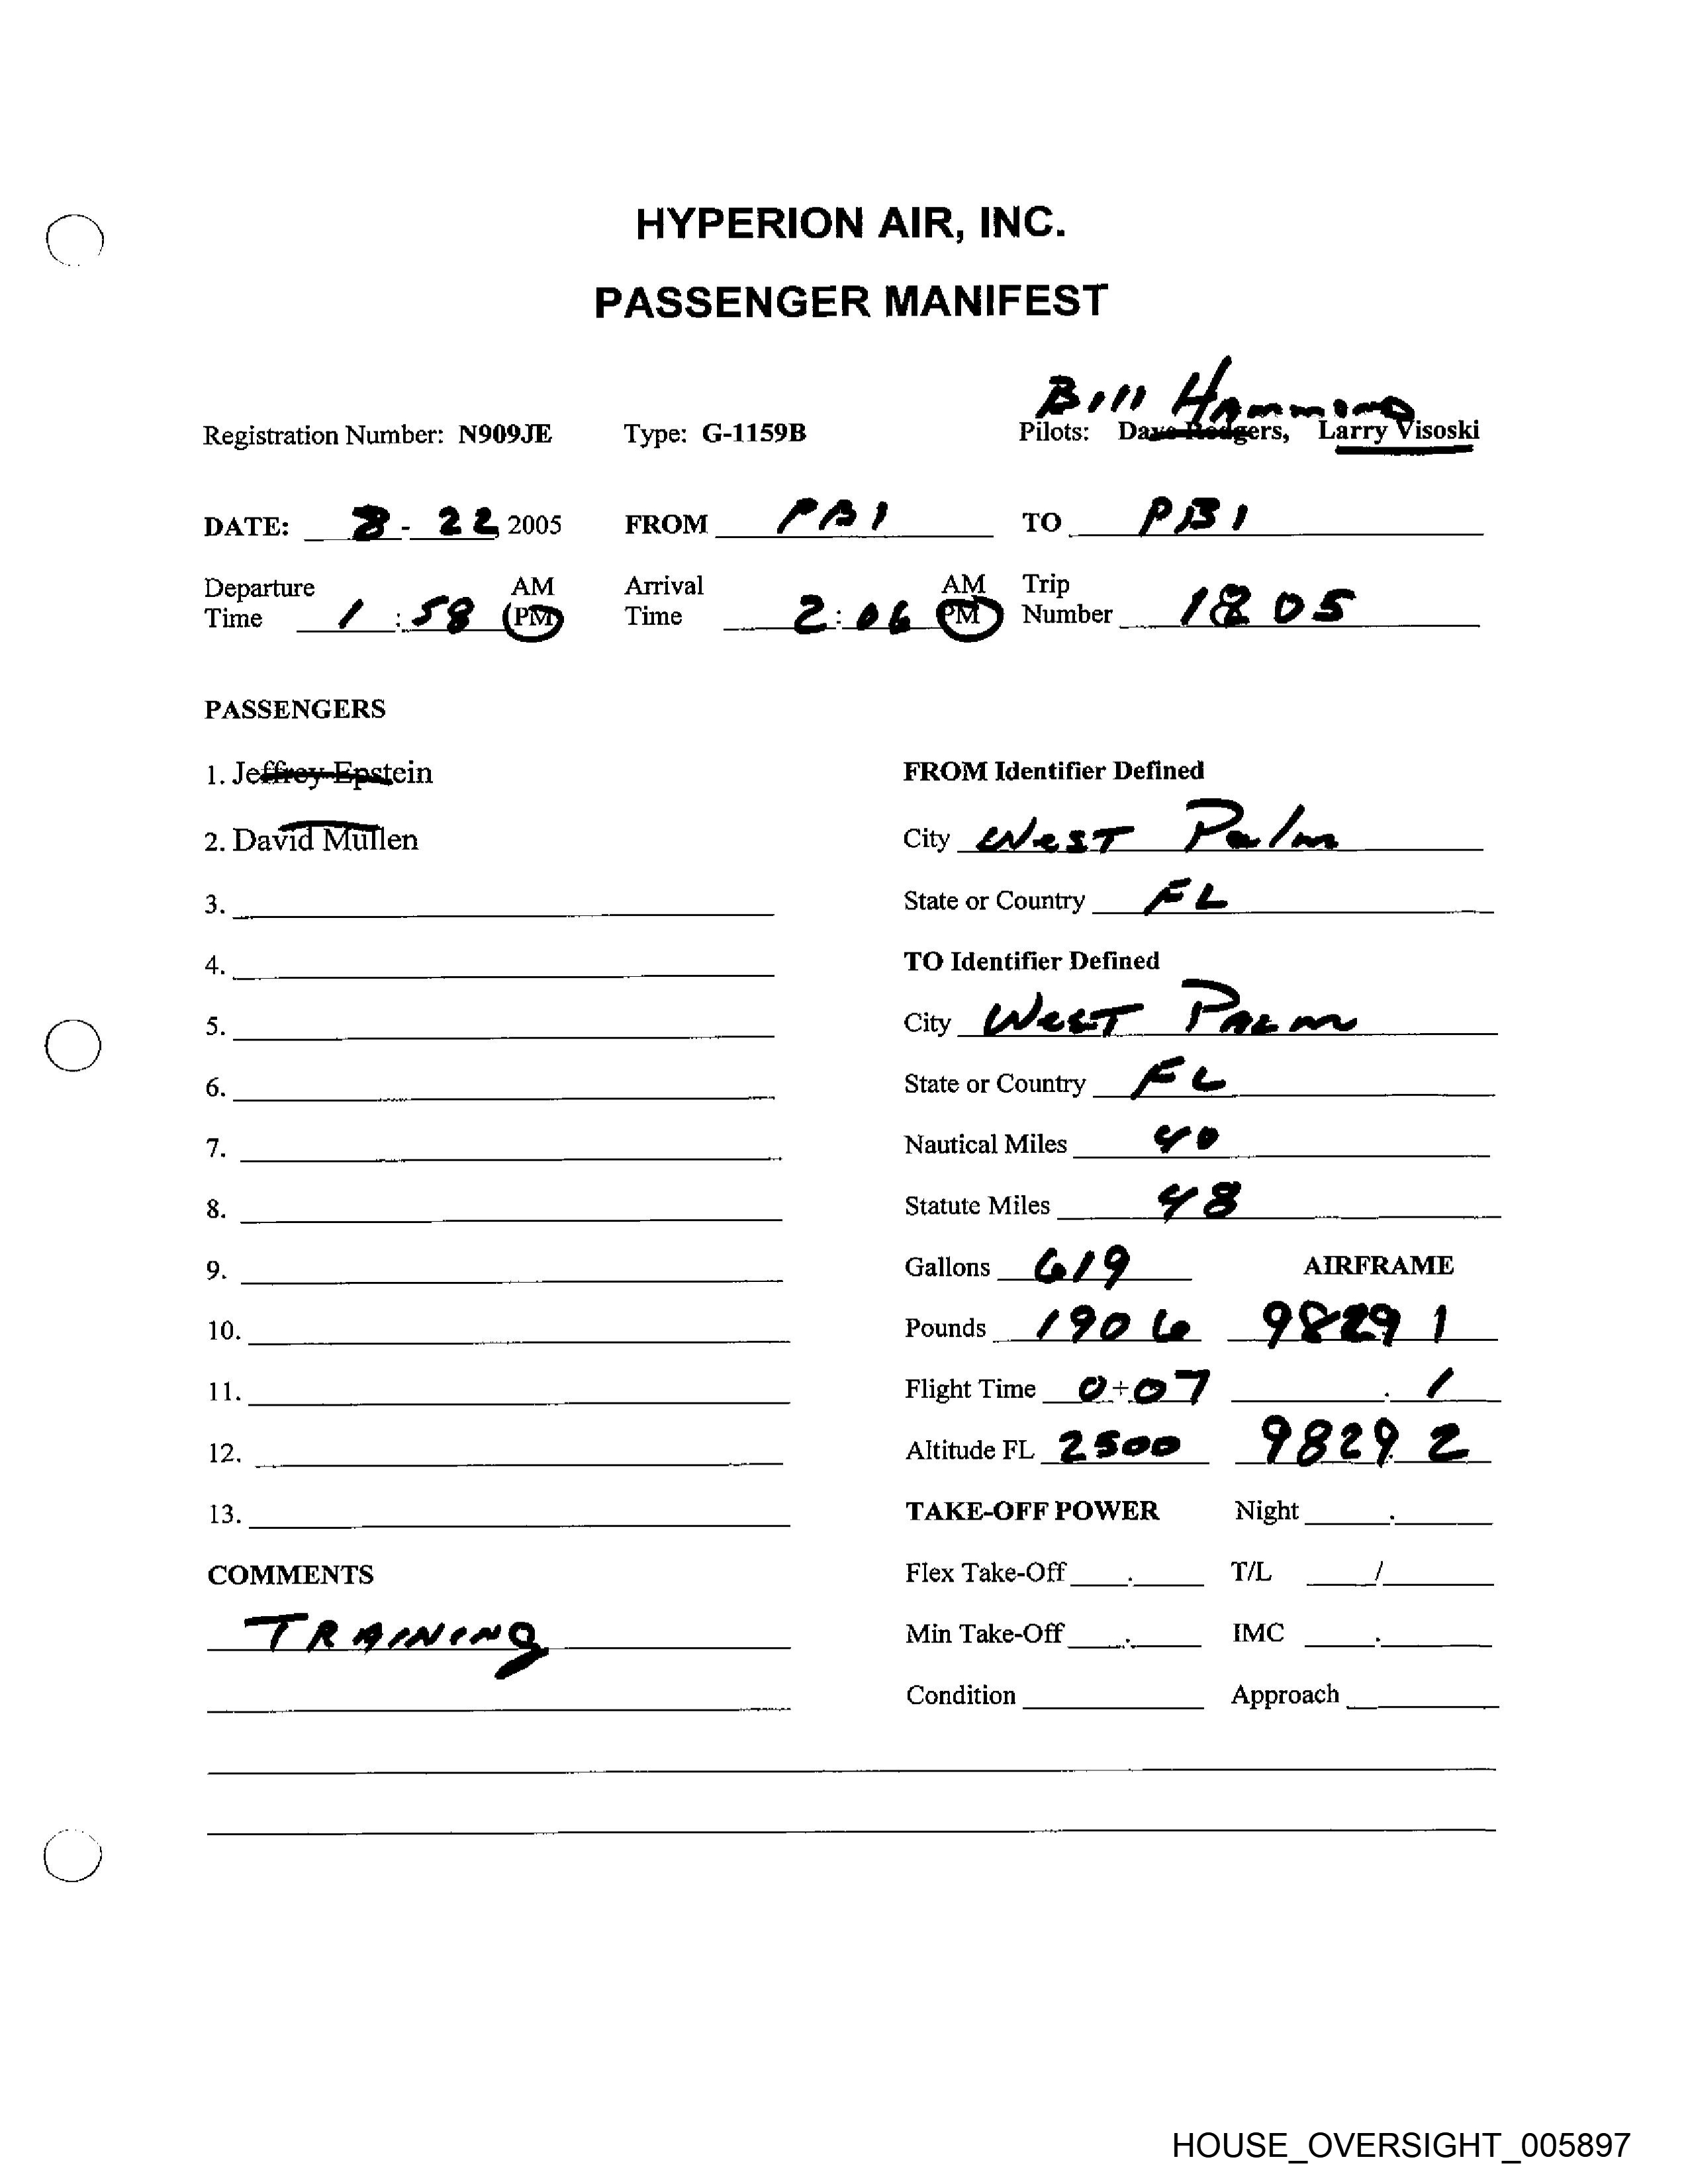 HYPERION AIR, INC.
PASSENGER MANIFEST
Bill Hammond
Registration Number: N909JE Type: G-1159B Pilots: Dave Rodgers, Larry Visoski
DATE: 8 - 22, 2005 FROM PBI TO PBI
Departure AM Arrival AM Trip
Time 1 : 58 PM Time 2 : 06 PM Number 1805
PASSENGERS
1. Jeffrey Epstein FROM Identifier Defined
2. David Mullen City West Palm
3. State or Country FL
4. TO Identifier Defined
5. City West Palm
6. State or Country FL
7. Nautical Miles 40
8. Statute Miles 48
9. Gallons 619 AIRFRAME
10. Pounds 1906 9829 1
11. Flight Time 0+07 . 1
12. Altitude FL 2500 9829. 2
13. TAKE-OFF POWER Night .
COMMENTS Flex Take-Off . T/L /
TRAINING Min Take-Off . IMC .
Condition Approach
HOUSE_OVERSIGHT_005897